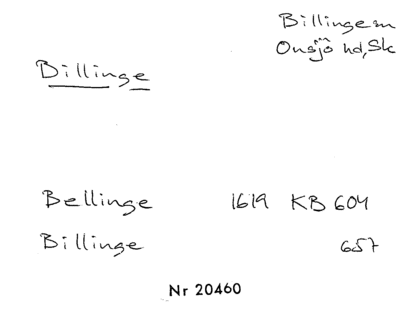 Billinge sn
Onsjö hd, Sk
Billinge
Bellinge 1619 KB 604
Billinge 657
Nr 20460